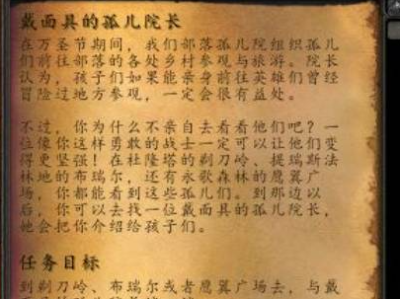 戴面具的孤儿院长
在万圣节期间，我们部落孤儿院组织孤儿
们前往部落的各处乡村参观与旅游。院长
认为，孩子们如果能亲身前往英雄们曾经
冒险过地方参观，一定会很有益处。
不过，你为什么不亲自去看看他们呢？一
位像你这样勇敢的战士一定可以让他们变
得更坚强！在杜隆塔的剃刀岭、提瑞斯法
林地的布瑞尔，还有永歌森林的鹰翼广
场，你都能看到这些孤儿们。到那边以
后，你可以去找一位戴面具的孤儿院长，
她会把你介绍给孩子们。
任务目标
到剃刀岭、布瑞尔或者鹰翼广场去，与戴